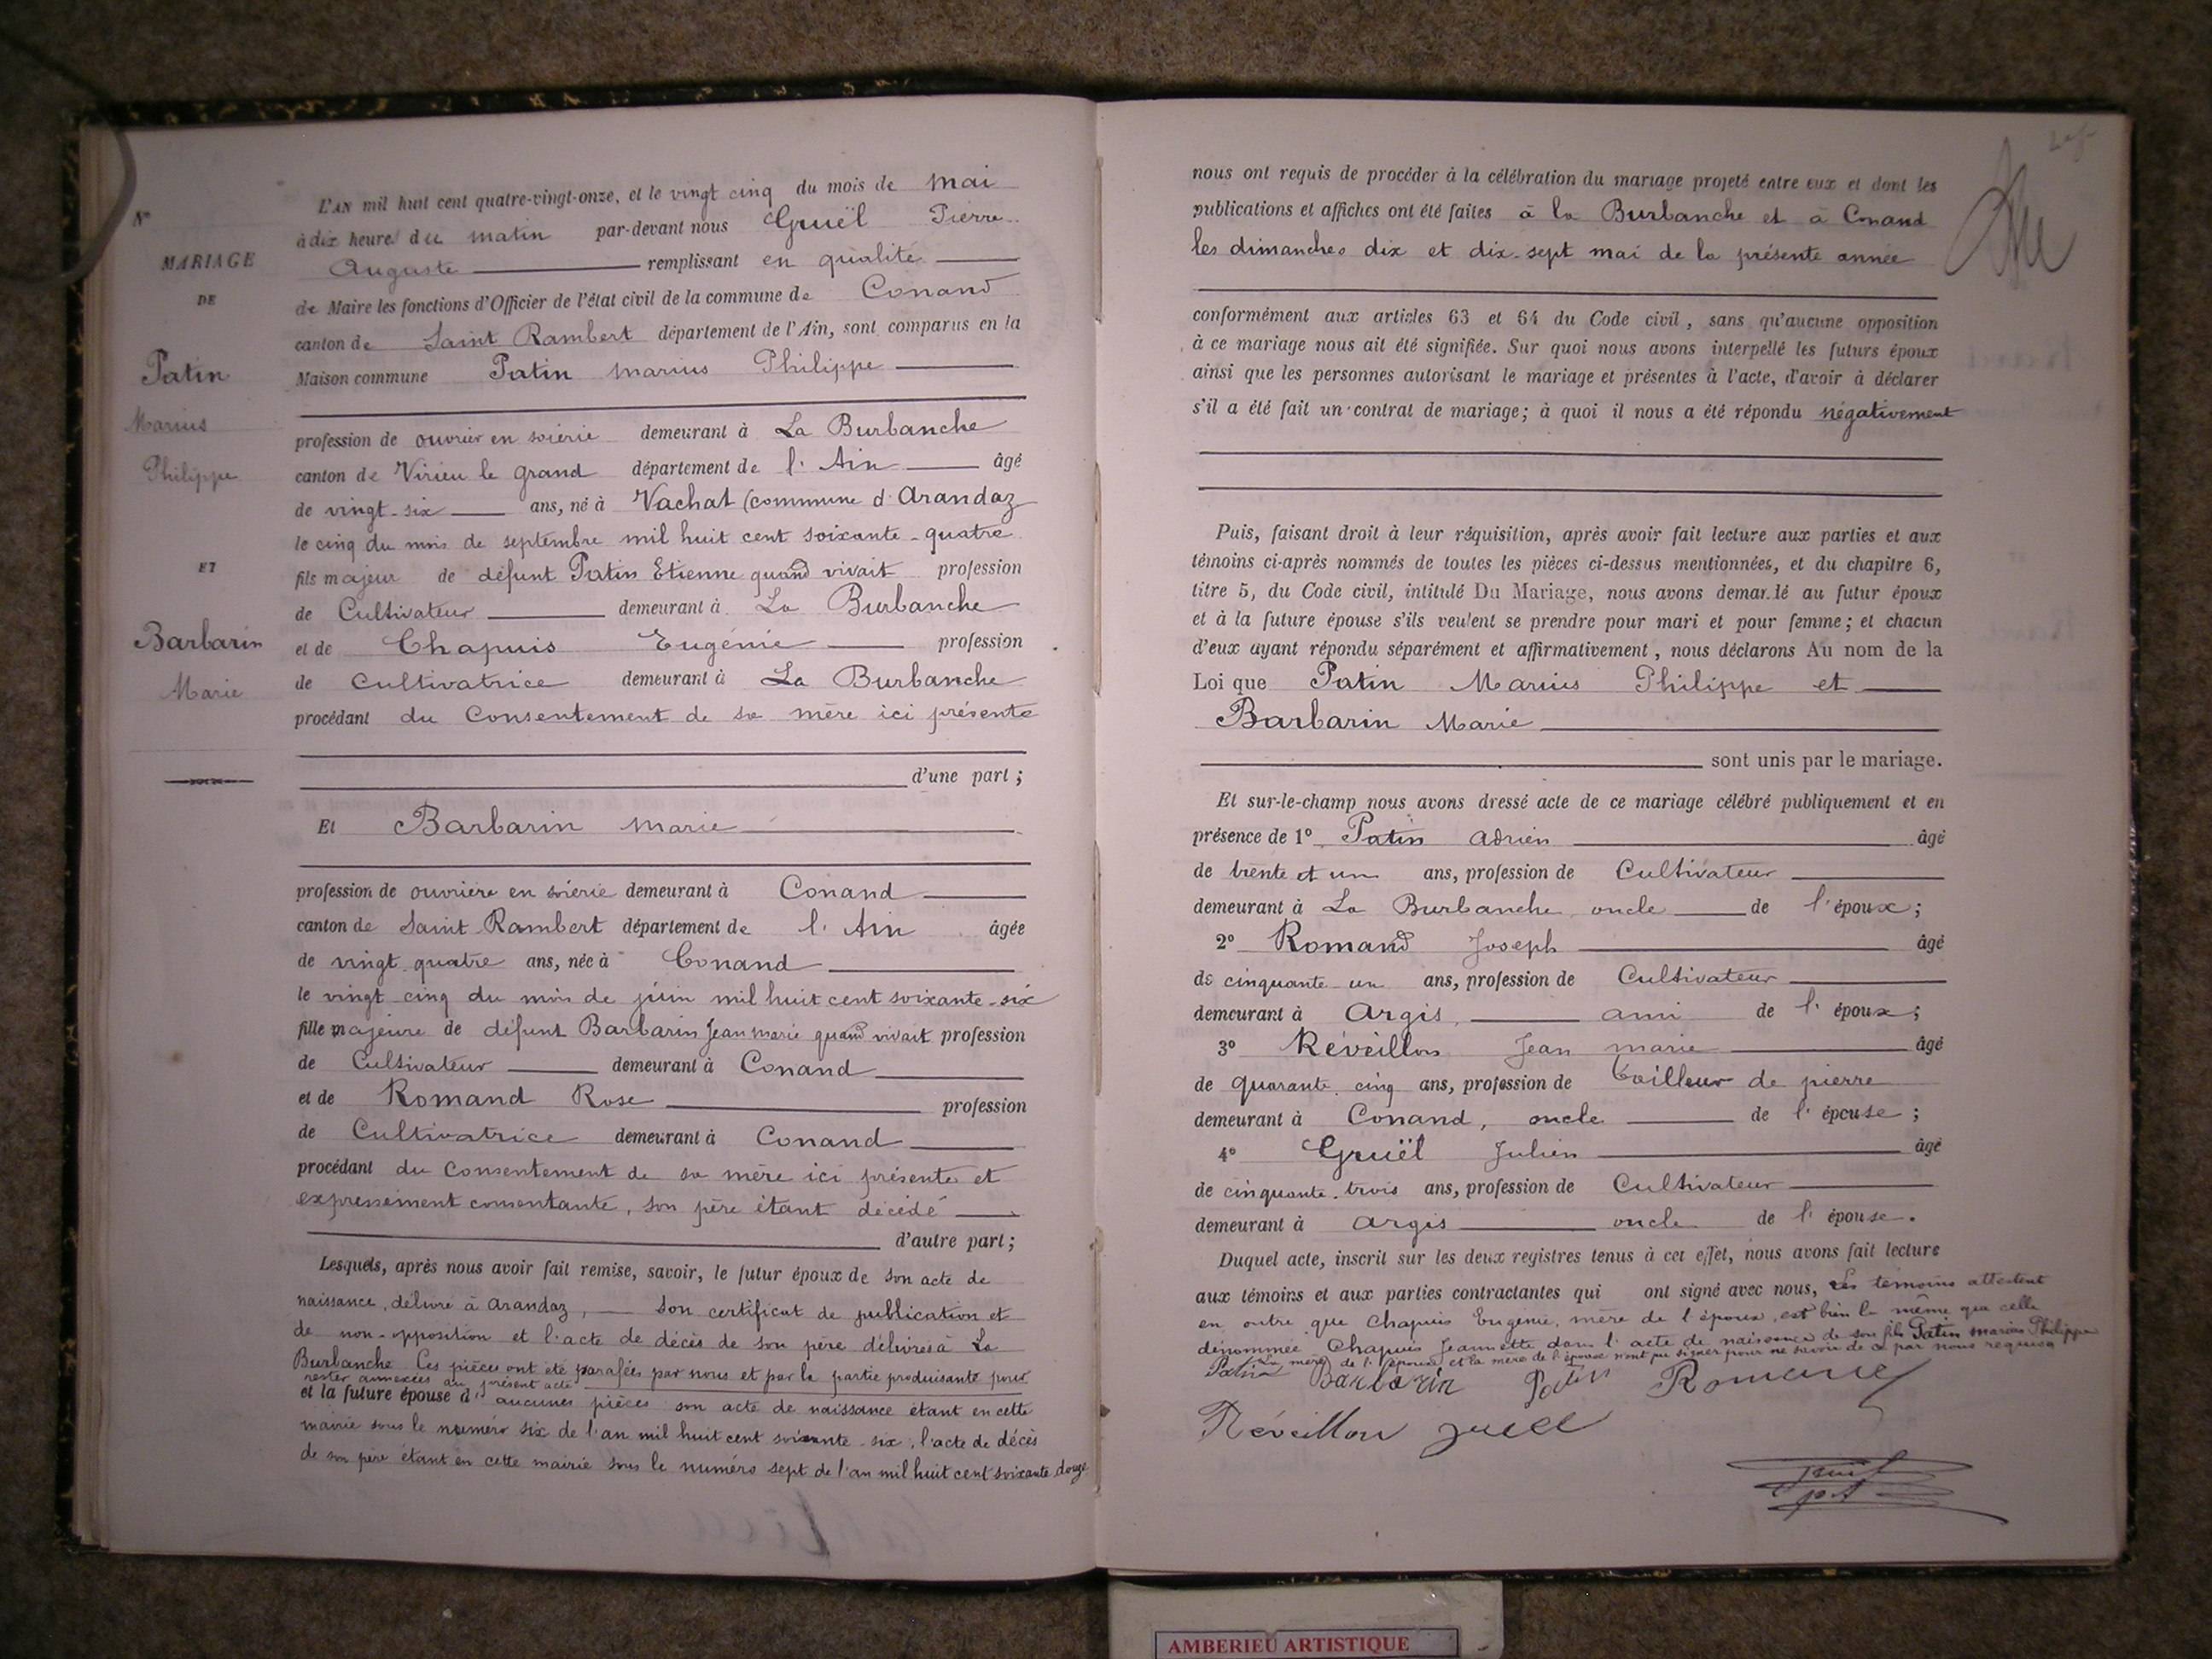 N°
MARIAGE
DE
Patin
Marius
Philippe
ET
Barbarin
Marie
L'AN mil huit cent quatre-vingt-onze, et le vingt cinq du mois de mai
à dix heures du matin par-devant nous Gruël Pierre
Auguste remplissant en qualité
de Maire les fonctions d'Officier de l'état civil de la commune de Conand
canton de Saint Rambert département de l'Ain, sont comparus en la
Maison commune Patin Marius Philippe
profession de ouvrier en soierie demeurant à La Burbanche
canton de Virieu le grand département de l'Ain âgé
de vingt-six ans, né à Vachat (commune d'Arandaz
le cinq du mois de septembre mil huit cent soixante-quatre
fils majeur de défunt Patin Etienne quand vivait profession
de Cultivateur demeurant à La Burbanche
et de Chapuis Eugénie profession
de Cultivatrice demeurant à La Burbanche
procédant du Consentement de sa mère ici présente
d'une part ;
Et Barbarin Marie
profession de ouvrière en soierie demeurant à Conand
canton de Saint-Rambert département de l'Ain âgée
de vingt quatre ans, née à Conand
le vingt cinq du mois de juin mil huit cent soixante-six
fille majeure de défunt Barbarin Jean marie quand vivait profession
de Cultivateur demeurant à Conand
et de Romand Rose profession
de Cultivatrice demeurant à Conand
procédant du Consentement de sa mère ici présente et
expressément consentante, son père étant décédé
d'autre part ;
Lesquels, après nous avoir fait remise, savoir, le futur époux de son acte de
naissance, délivré à Arandaz, son certificat de publication et
de non-opposition et l'acte de décès de son père délivrés à La
Burbanche Ces pièces ont été parafées par nous et par la partie produisante pour
rester annexées au présent acte
et la future épouse d'aucunes pièces son acte de naissance étant en cette
mairie sous le numéro six de l'an mil huit cent soixante-six, l'acte de décès
de son père étant en cette mairie sous le numéro sept de l'an mil huit cent soixante douze
nous ont requis de procéder à la célébration du mariage projeté entre eux et dont les
publications et affiches ont été faites à la Burbanche et à Conand
les dimanches dix et dix-sept mai de la présente année
conformément aux articles 63 et 64 du Code civil, sans qu'aucune opposition
à ce mariage nous ait été signifiée. Sur quoi nous avons interpellé les futurs époux
ainsi que les personnes autorisant le mariage et présentes à l'acte, d'avoir à déclarer
s'il a été fait un contrat de mariage; à quoi il nous a été répondu négativement
Puis, faisant droit à leur réquisition, après avoir fait lecture aux parties et aux
témoins ci-après nommés de toutes les pièces ci-dessus mentionnées, et du chapitre 6,
titre 5, du Code civil, intitulé Du Mariage, nous avons demandé au futur époux
et à la future épouse s'ils veulent se prendre pour mari et pour femme; et chacun
d'eux ayant répondu séparément et affirmativement, nous déclarons Au nom de la
Loi que Patin Marius Philippe et
Barbarin Marie
sont unis par le mariage.
Et sur-le-champ nous avons dressé acte de ce mariage célébré publiquement et en
présence de 1° Patin Adrien âgé
de trente et un ans, profession de Cultivateur
demeurant à La Burbanche, oncle de l'époux;
2° Romand Joseph âgé
de cinquante-un ans, profession de Cultivateur
demeurant à Argis, ami de l'époux;
3° Réveillon Jean marie âgé
de quarante cinq ans, profession de tailleur de pierre
demeurant à Conand, oncle de l'épouse ;
4° Gruël Julien âgé
de cinquante-trois ans, profession de Cultivateur
demeurant à Argis oncle de l'épouse.
Duquel acte, inscrit sur les deux registres tenus à cet effet, nous avons fait lecture
aux témoins et aux parties contractantes qui ont signé avec nous, Les témoins attestent
en outre que Chapuis Eugénie, mère de l'époux, est bien la même que celle
dénommée Chapuis Jeannette dans l'acte de naissance de son fils Patin Marius Philippe
La mère de l'époux et la mère de l'épouse n'ont pu signer pour ne savoir de ce par nous requises
Patin Barbarin Patin Romand
Réveillon Gruel
AMBERIEU ARTISTIQUE